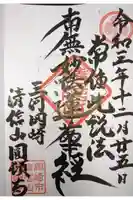 令和三年十二月廿五日
常住此説法
南無妙法蓮華経
三河岡崎
清信山圓頓寺